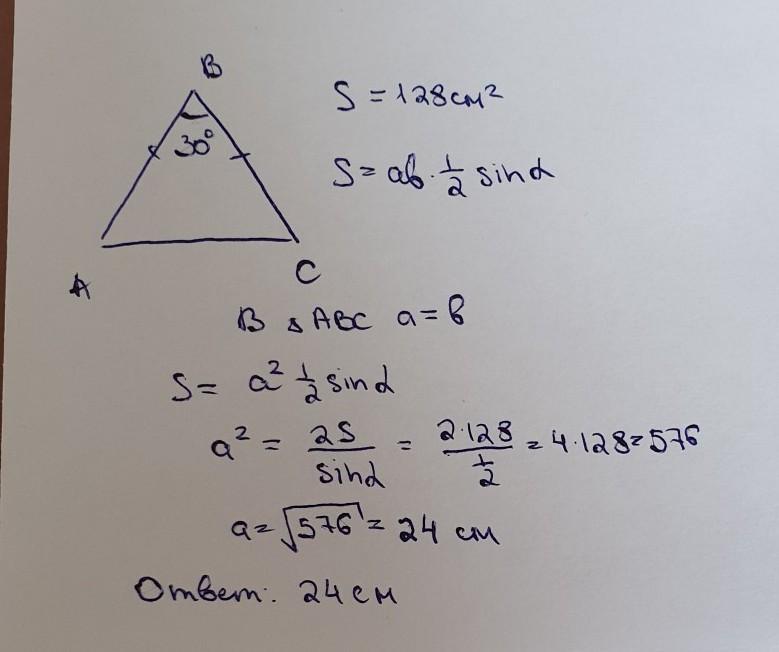 B
30°
A
C
S = 128 см²
S = ab · 1/2 sin α
В △ ABC a = b
S = a² 1/2 sin α
a² = 2S / sin α = 2·128 / 1/2 = 4·128 = 576
a = √576 = 24 см
Ответ: 24 см